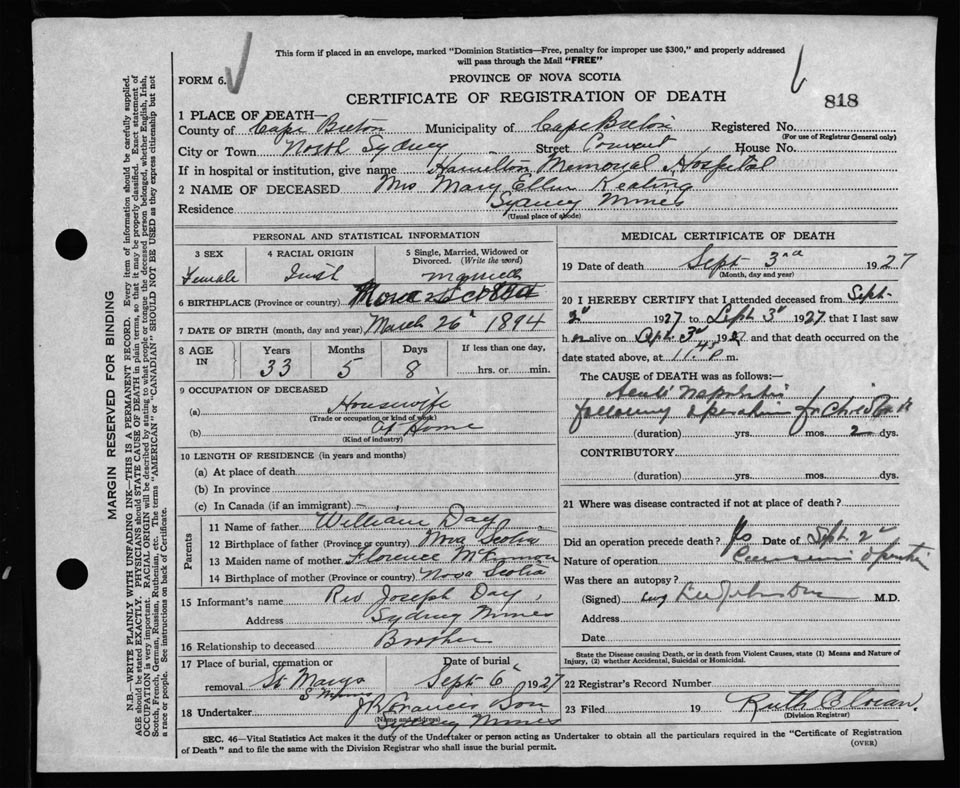 This form if placed in an envelope, marked "Dominion Statistics—Free, penalty for improper use $300," and properly addressed
will pass through the Mail "FREE"
FORM 6.
PROVINCE OF NOVA SCOTIA
CERTIFICATE OF REGISTRATION OF DEATH
818
1 PLACE OF DEATH—
County of Cape Breton Municipality of Cape Breton Registered No.
(For use of Registrar General only)
City or Town North Sydney Street Convent House No.
If in hospital or institution, give name Hamilton Memorial Hospital
2 NAME OF DECEASED Mrs Mary Ellen Keating
Residence Sydney Mines
(Usual place of abode)
PERSONAL AND STATISTICAL INFORMATION
3 SEX
Female
4 RACIAL ORIGIN
Irish
5 Single, Married, Widowed or
Divorced. (Write the word)
Married
6 BIRTHPLACE (Province or country) Nova Scotia
7 DATE OF BIRTH (month, day and year) March 26" 1894
8 AGE IN
Years Months Days If less than one day,
33 5 8 hrs. or min.
9 OCCUPATION OF DECEASED
(a) Housewife
(Trade or occupation or kind of work)
(b) At Home
(Kind of industry)
10 LENGTH OF RESIDENCE (in years and months)
(a) At place of death
(b) In province
(c) In Canada (if an immigrant)
Parents
11 Name of father William Day
12 Birthplace of father (Province or country) Nova Scotia
13 Maiden name of mother Florence McKinnon
14 Birthplace of mother (Province or country) Nova Scotia
15 Informant's name Rev Joseph Day,
Address Sydney Mines
16 Relationship to deceased Brother
17 Place of burial, cremation or Date of burial
removal St Marys Sept 6" 1927
S Mines
18 Undertaker Son
(Name and address)
Sydney Mines
MEDICAL CERTIFICATE OF DEATH
19 Date of death Sept 3rd 1927
(Month, day and year)
20 I HEREBY CERTIFY that I attended deceased from Sept-
2" 1927 to Sept 3" 1927 that I last saw
her alive on Sept. 3" 1927 and that death occurred on the
date stated above, at 11.45 p m.
The CAUSE of DEATH was as follows:—
Acute Nephritis
following operation for Child
(duration) yrs. mos. 2 dys.
CONTRIBUTORY
(duration) yrs. mos. dys.
21 Where was disease contracted if not at place of death?
Did an operation precede death? Yes Date of Sept 2"
Nature of operation
Was there an autopsy?
(Signed) M.D.
Address
Date
State the Disease causing Death, or in death from Violent Causes, state (1) Means and Nature of
Injury, (2) whether Accidental, Suicidal or Homicidal.
22 Registrar's Record Number
23 Filed 19 Ruth
(Division Registrar)
SEC. 46—Vital Statistics Act makes it the duty of the Undertaker or person acting as Undertaker to obtain all the particulars required in the "Certificate of Registration
of Death" and to file the same with the Division Registrar who shall issue the burial permit.
(OVER)
MARGIN RESERVED FOR BINDING
N.B.—WRITE PLAINLY WITH UNFADING INK—THIS IS A PERMANENT RECORD. Every item of information should be carefully supplied.
AGE should be stated EXACTLY. PHYSICIANS should STATE CAUSE OF DEATH in plain terms, so that it may be properly classified. Exact statement of
OCCUPATION is very important. RACIAL ORIGIN will be described by stating to what people or tongue the deceased person belonged, whether English, Irish,
Scotch, French, German, Russian, Ruthenian, etc. The terms "AMERICAN" or "CANADIAN" SHOULD NOT BE USED as they express citizenship but not
a race or people. See instructions on back of Certificate.